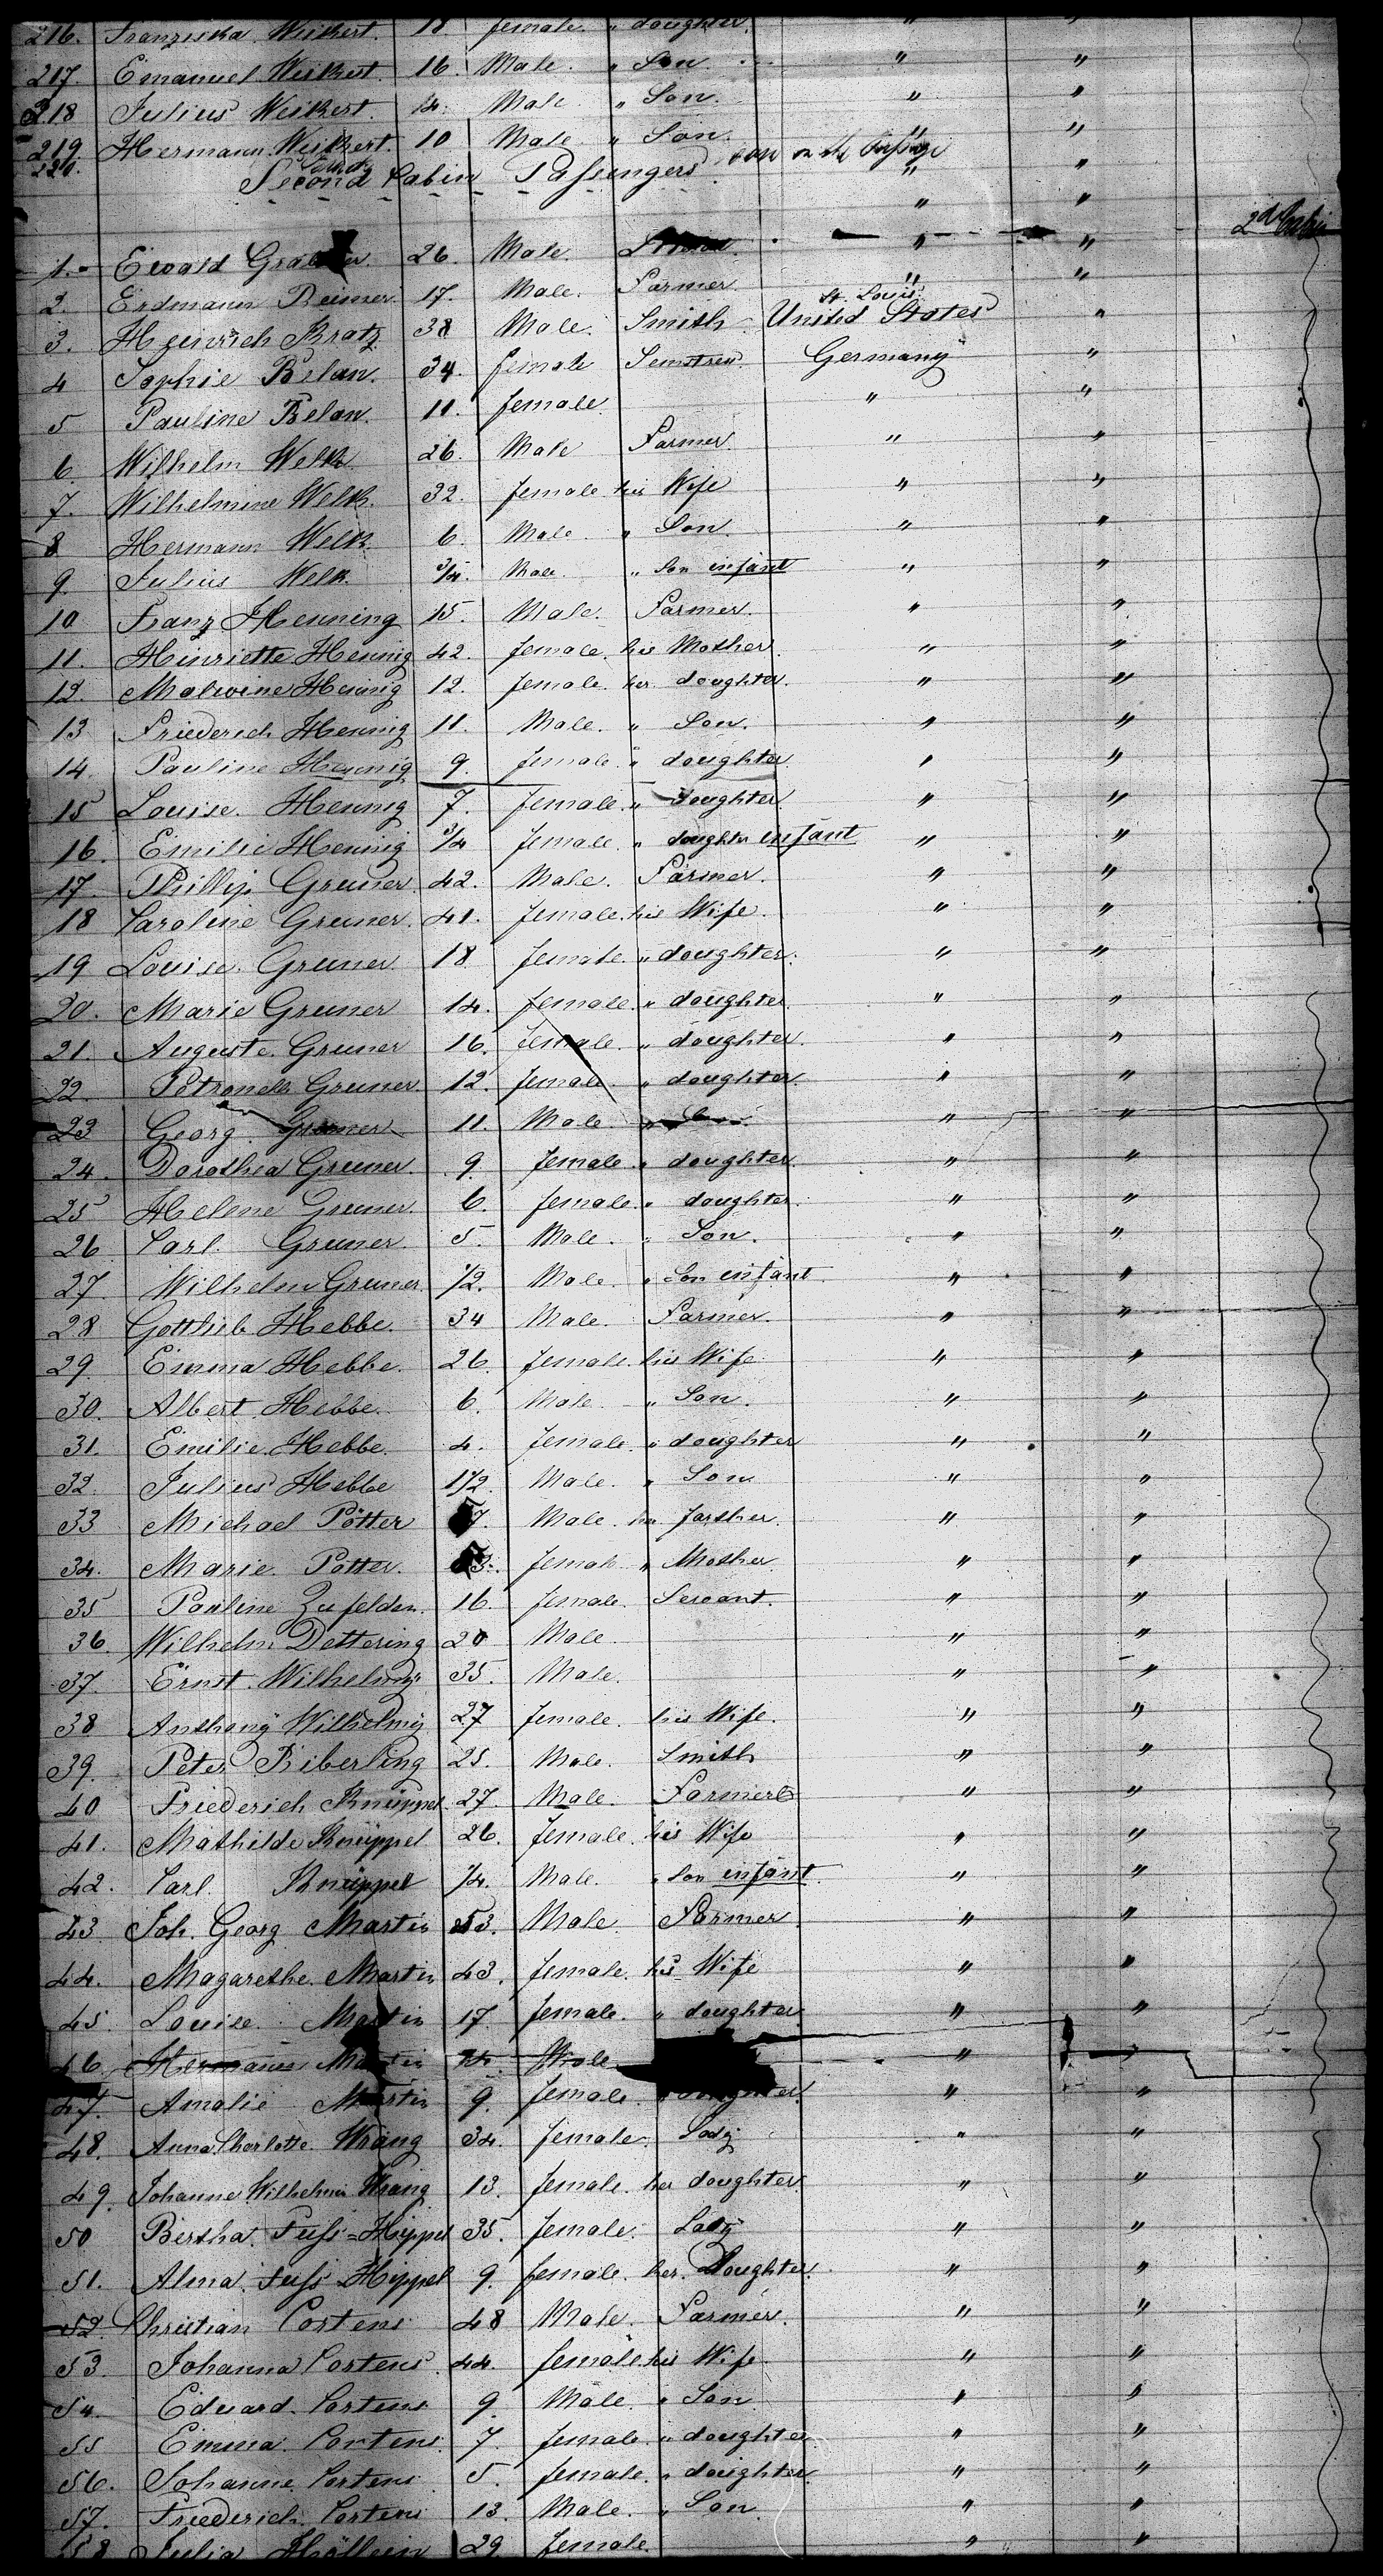 216. Franziska Weikert. 18. female. " doughter. " "
217. Emanuel Weikert. 16. Male. " Son. " "
218 Julius Weikert. 14. Male " Son. " "
219 Hermann Weikert. 10 Male " Son. " "
220. born on the Passage " "
Second Cabin Passengers. " "
2d Cabin
1. Ewald 26. Male. " "
2. Erdmann Reimer 17. Male. Farmer " "
St. Louis
3. Heinrich Kratz 38 Male. Smith United States "
4 Sophie Belan. 34. female Semstress Germany "
5 Pauline Belan. 11. female. " "
6. Wilhelm Welk 26. Male Farmer. " "
7. Wilhelmine Welk. 32. female his Wife " "
8 Hermann Welk. 6. Male. " Son. " "
9. Julius Welk. 3/4. Male. " Son infant " "
10 Franz Henning 15. Male. Farmer. " "
11. Hinriette Hennig 42. female. his Mother. " "
12. Malwine Hennig 12. female. her doughter. " "
13 Friederich Hennig 11. Male. " Son. " "
14. Pauline Hennig 9. female. " doughter. " "
15 Louise. Hennig 7. female. " doughter " "
16. Emilie Hennig 3/4 female. " doughter infant " "
17 Phillip Gruner. 42. Male. Farmer. " "
18 Caroline Gruner. 41. female. his Wife. " "
19 Louise. Gruner. 18 female. " doughter. " "
20. Marie Gruner 14. female. " doughter. " "
21. Auguste. Gruner 16. female. " doughter. " "
22. Petronella Gruner. 12. female " doughter. " "
23 Georg. Gruner 11. Male. " Son. " "
24. Dorothea Gruner. 9. female. " doughter. " "
25 Helene Gruner. 6. female. " doughter. " "
26 Carl. Gruner. 5. Male. " Son. " "
27. Wilhelm Gruner. 1/2. Male. " Son infant. " "
28 Gottlieb Hebbe. 34 Male. Farmer. " "
29. Emma Hebbe. 26. female. his Wife. " "
30. Albert Hebbe. 6. Male. " Son. " "
31. Emilie. Hebbe. 4. female. " doughter " "
32. Julius Hebbe 1 1/2. Male. " Son " "
33 Michael Pötter Male. farther " "
34. Marie Potter. female " Mother " "
35 Pauline Zufelden. 16. female. Servant. " "
36. Wilhelm Dettering 20 Male. " "
37. Ernst. Wilhelmy 35. Male. " "
38 Anthony Wilhelmy 27 female. his Wife. " "
39. Peter Biberling 25. Male. Smith " "
40 Friederich Knüppel. 27. Male. Farmer " "
41. Mathilde Knüppel 26. female. his Wife " "
42. Carl. Knüppel 1/4. Male. " Son infant. " "
43 Joh. Georg Martin 53. Male. Farmer. " "
44. Magarethe. Martin 43. female. his Wife " "
45. Louise Martin 17. female. " doughter. " "
46. Hermann Martin 14. Male " "
47. Amalie Martin 9. female. " doughter. " "
48. Anna Charlotte. Wrang 34. female. Lady. " "
49. Johanne Wilhelmine Wrang 13. female. her doughter. " "
50 Bertha. Fuss-Hippel 35. female. Lady " "
51. Alma. Fuss Hippel 9. female. her. Doughter. " "
52. Christian Cortens 48 Male. Farmer. " "
53. Johanna Cortens. 44. female his Wife. " "
54. Eduard. Cortens 9. Male " Son " "
55 Emma. Cortens. 7. female. " doughter. " "
56. Johanne. Cortens 5. female. " doughter. " "
57. Friederich. Cortens 13. Male. " Son. " "
58 Julia Höllein 29 female. " "